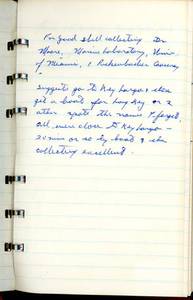 For good shell collecting Dr.
Moore, Marine Laboratory, Univ.
of Miami, 1 Rickenbacker Causeway,
suggests go to Key Largo & then
get a boat for long key or 2
other spots the names I forget,
all were close to Key Largo -
20 min or so by boat & shell
collecting excellent.